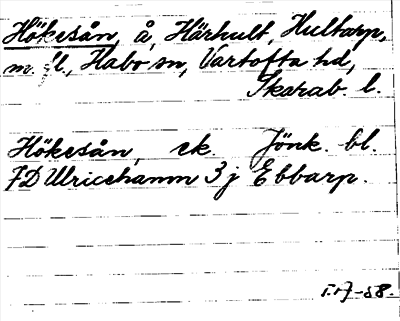 Hökesån, å, Härhult, Hultarp,
m. fl., Habo sn, Vartofta hd,
Skarab. l.
Hökesån, ek. Jönk. bl.
FD Ulricehamn 3j Ebbarp.